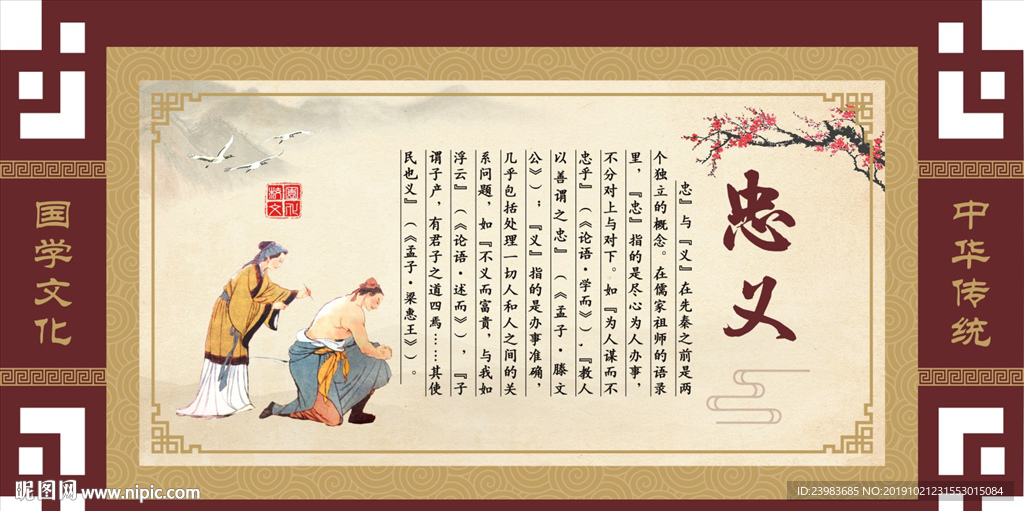 中华传统
忠义
『忠』与『义』在先秦之前是两
个独立的概念。在儒家祖师的语录
里，『忠』指的是尽心为人办事，
不分对上与对下。如『为人谋而不
忠乎』（《论语·学而》），『教人
以善谓之忠』（《孟子·滕文
公》）；『义』指的是办事准确，
几乎包括处理一切人和人之间的关
系问题，如『不义而富贵，与我如
浮云』（《论语·述而》），『子
谓子产，有君子之道四焉……其使
民也义』（《孟子·梁惠王》）。
国学文化
昵图网 www.nipic.com
ID:23983685 NO:20191021231553015084